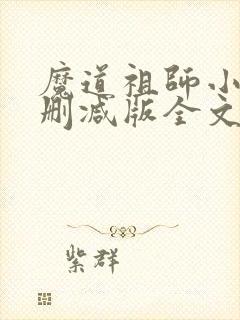 魔道祖師小
刪減版全文
紫群